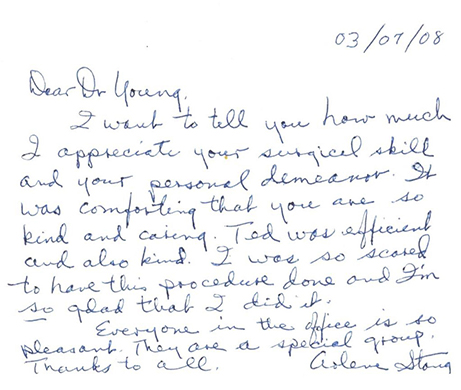 03/07/08
Dear Dr Young,
I want to tell you how much
I appreciate your surgical skill
and your personal demeanor. It
was comforting that you are so
kind and caring. Ted was efficient
and also kind. I was so scared
to have this procedure done and I'm
so glad that I did it.
Everyone in the office is so
pleasant. They are a special group.
Thanks to all. Arlene Stong